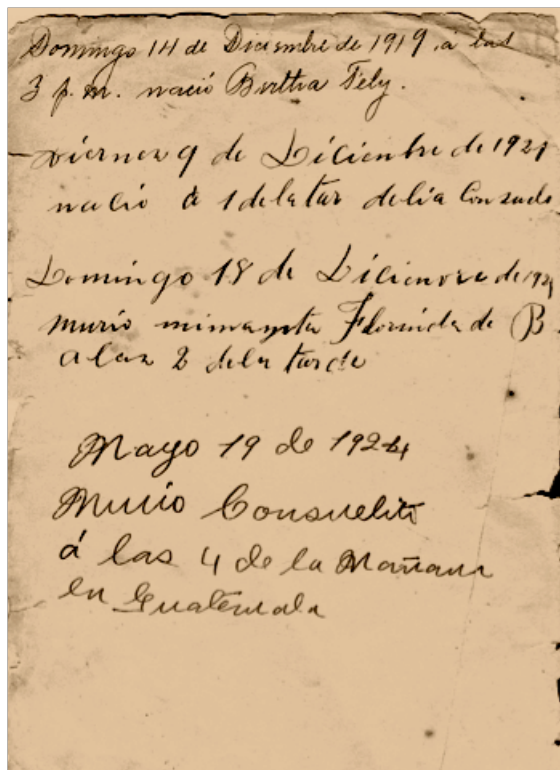 Domingo 14 de Diciembre de 1919 á las
3 p. m. nació Bertha Fely.
viernes 9 de Diciembre de 1921
nació á 1 dela tar delia Consuelo
Domingo 18 de Diciembre de 1921
murió mimamita Florinda de B
alas 2 dela tarde
Mayo 19 de 1924
Murio Consuelito
á las 4 de la Mañana
en Guatemala